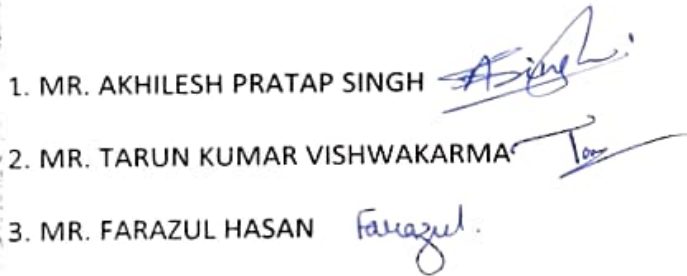 1. MR. AKHILESH PRATAP SINGH ASingh
2. MR. TARUN KUMAR VISHWAKARMA
3. MR. FARAZUL HASAN Farazul.